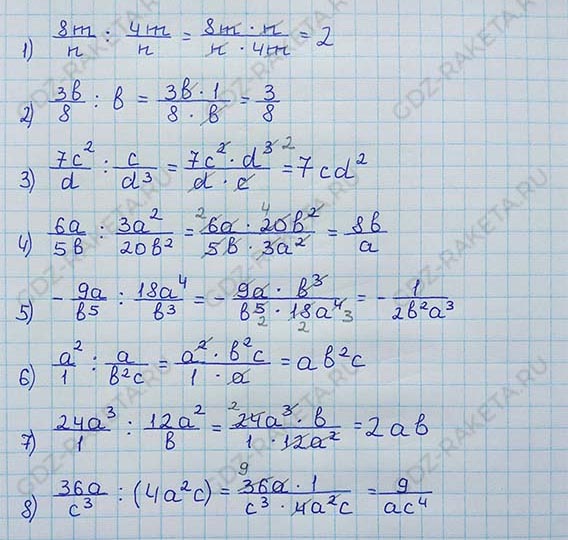 1) 8m/n : 4m/n = 8m · n / n · 4m = 2
2) 3b/8 : b = 3b · 1 / 8 · b = 3/8
3) 7c²/d : c/d³ = 7c² · d³ ² / d · c = 7cd²
4) 6a/5b : 3a²/20b² = ² 6a · ⁴ 20b² / 5b · 3a² = 8b/a
5) - 9a/b⁵ : 18a⁴/b³ = - 9a · b³ / b⁵ ₂ · 18 ₂ a⁴ ³ = - 1/2b²a³
6) a²/1 : a/b²c = a² · b²c / 1 · a = ab²c
7) 24a³/1 : 12a²/b = ² 24a³ · b / 1 · 12a² = 2ab
8) 36a/c³ : (4a²c) = ⁹ 36a · 1 / c³ · 4a²c = 9/ac⁴
GDZ-RAKETA.RU